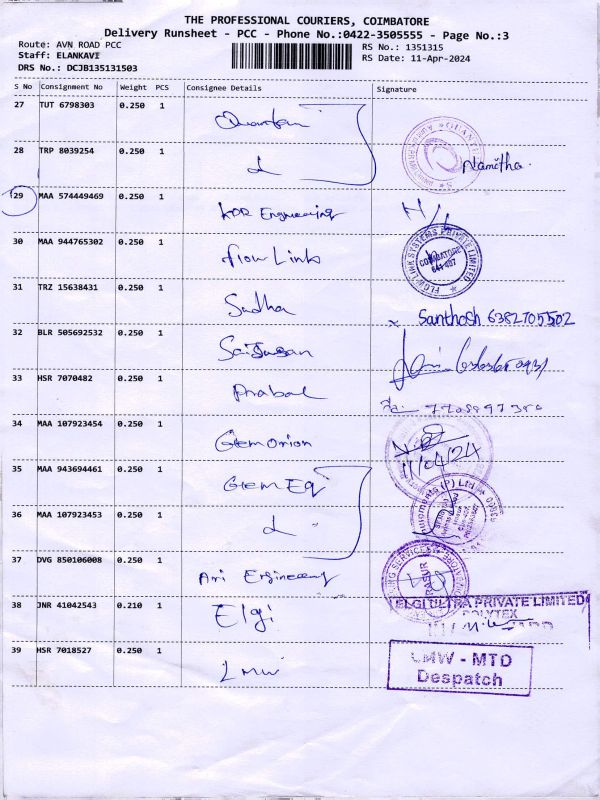 THE PROFESSIONAL COURIERS, COIMBATORE
Delivery Runsheet - PCC - Phone No.:0422-3505555 - Page No.:3
Route: AVN ROAD PCC
Staff: ELANKAVI
DRS No.: DCJB135131503
RS No.: 1351315
RS Date: 11-Apr-2024
S No Consignment No Weight PCS Consignee Details Signature
27 TUT 6798303 0.250 1
28 TRP 8039254 0.250 1 Namitha
29 MAA 574449469 0.250 1 Engineering
30 MAA 944765302 0.250 1 Flow Links
FLOW LINK SYSTEMS PRIVATE LIMITED
COIMBATORE
31 TRZ 15638431 0.250 1 Sudha
Santhosh 6382705502
32 BLR 505692532 0.250 1
33 HSR 7070482 0.250 1 Prabal
34 MAA 107923454 0.250 1 Gem Orion
11/04/24
35 MAA 943694461 0.250 1 Gem Eqi
36 MAA 107923453 0.250 1
37 DVG 850106008 0.250 1 Engineering
38 JNR 41042543 0.210 1 Elgi
ELGI ULTRA PRIVATE LIMITED
39 HSR 7018527 0.250 1 LMW
LMW - MTD
Despatch